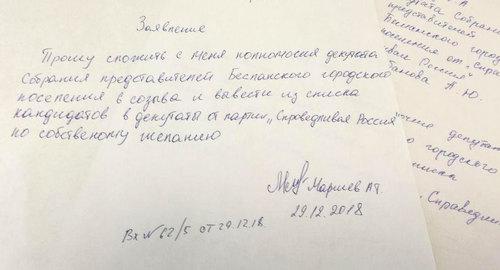 Заявление
Прошу сложить с меня полномочия депутата
Собрания представителей Бесланского городского
поселения 5 созыва и вывести из списка
кандидатов в депутаты от партии „Справедливая Россия"
по собственому желанию
29.12.2018
Вх № 62/5 от 29.12.18.
А
путата Собрания
представителей
Бесланского город
Россия"
А. Ю.
депутат
городского
Справедли